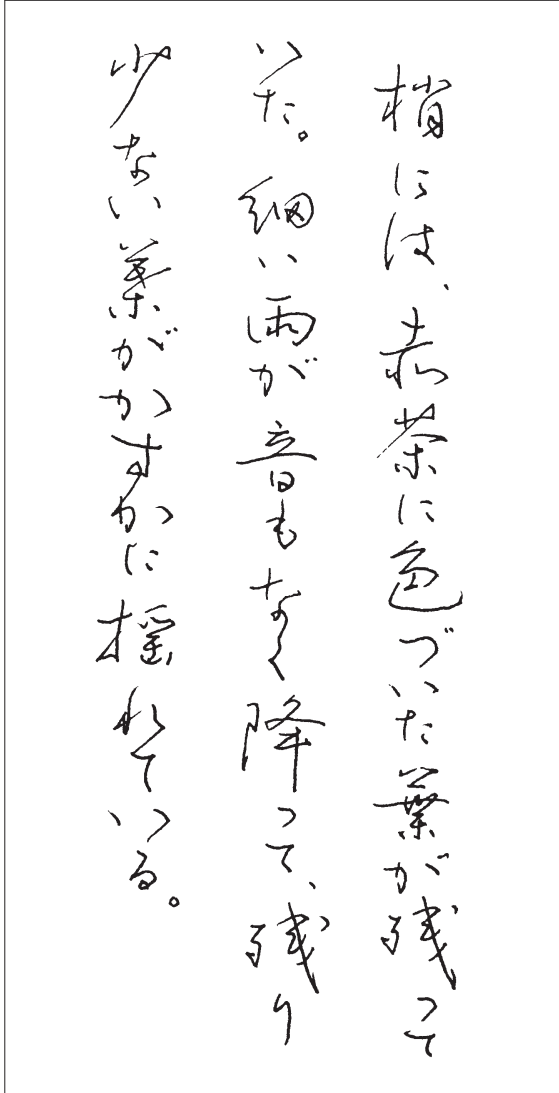 梢には、赤茶に色づいた葉が残って
いた。細い雨が音もなく降って、残り
少ない葉がかすかに揺れている。